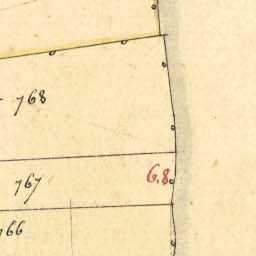 768
767
6.8
766